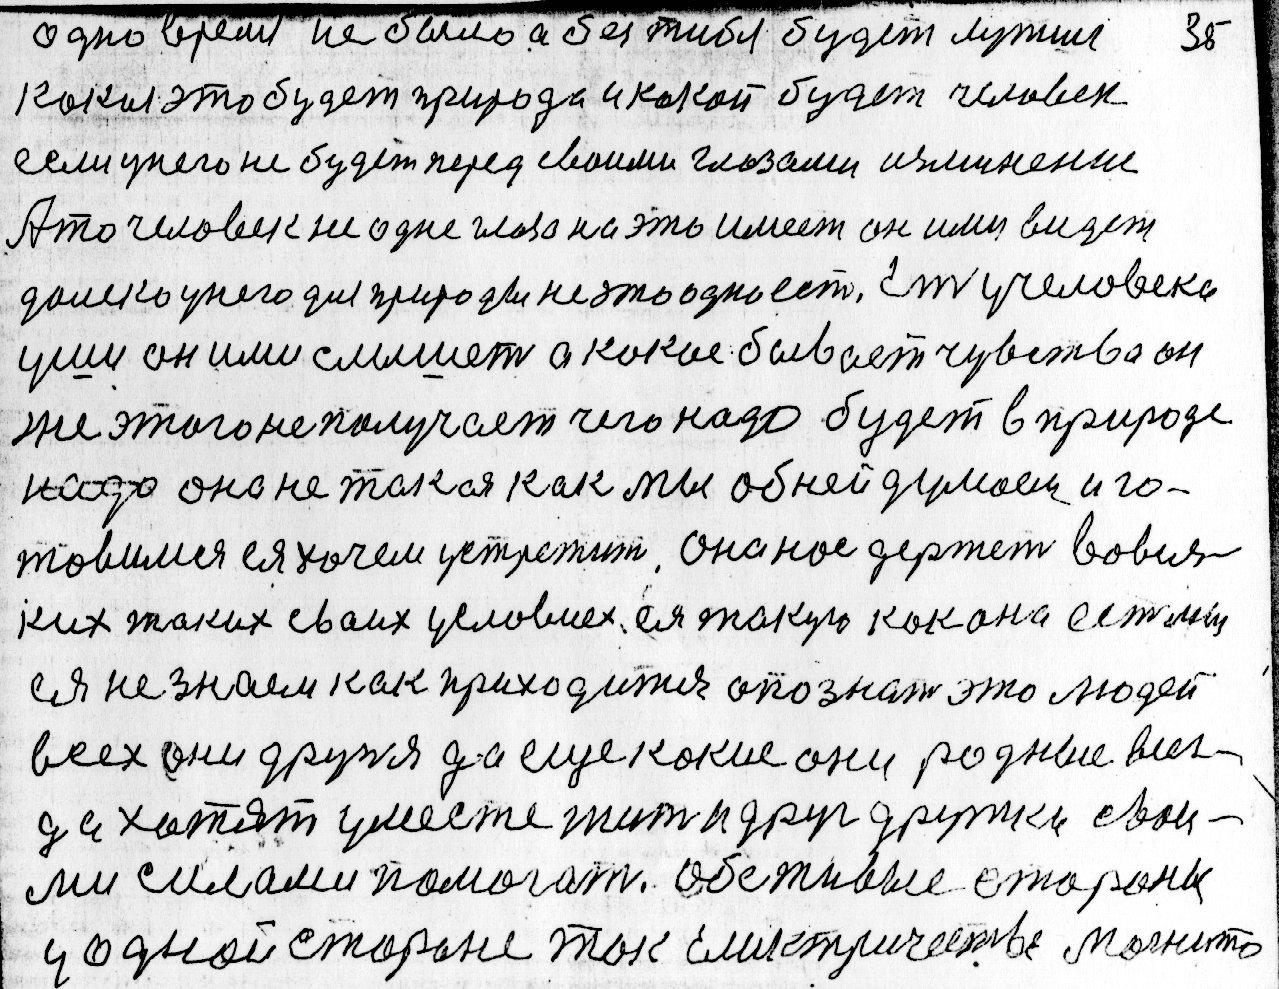 одно время не было а без тибя будет лутши 35
какая это будет природа и какой будет человек
если унего не будет перед своими глазами изминение
Ато человек не одне глаза на это имеет он ими видет
далеко унего для природы не это одно ест. Ест у человека
уши он ими слышет а какое бывает чувства он
же этого не получает чего надо будет в природе
надо она не такая как мы об ней думаем и го-
товимся ея хочем устретит. Она нас держет вовся-
ких таких своих условиех. ея такую как она ест мы
ея не знаем как приходится опознат это людей
всех они друзя да еще какие они родные всег-
да хотят уместе жит и друг дружки свои-
ми силами помогат. Обе живые стороны
у одной стороне ток електричества магнито